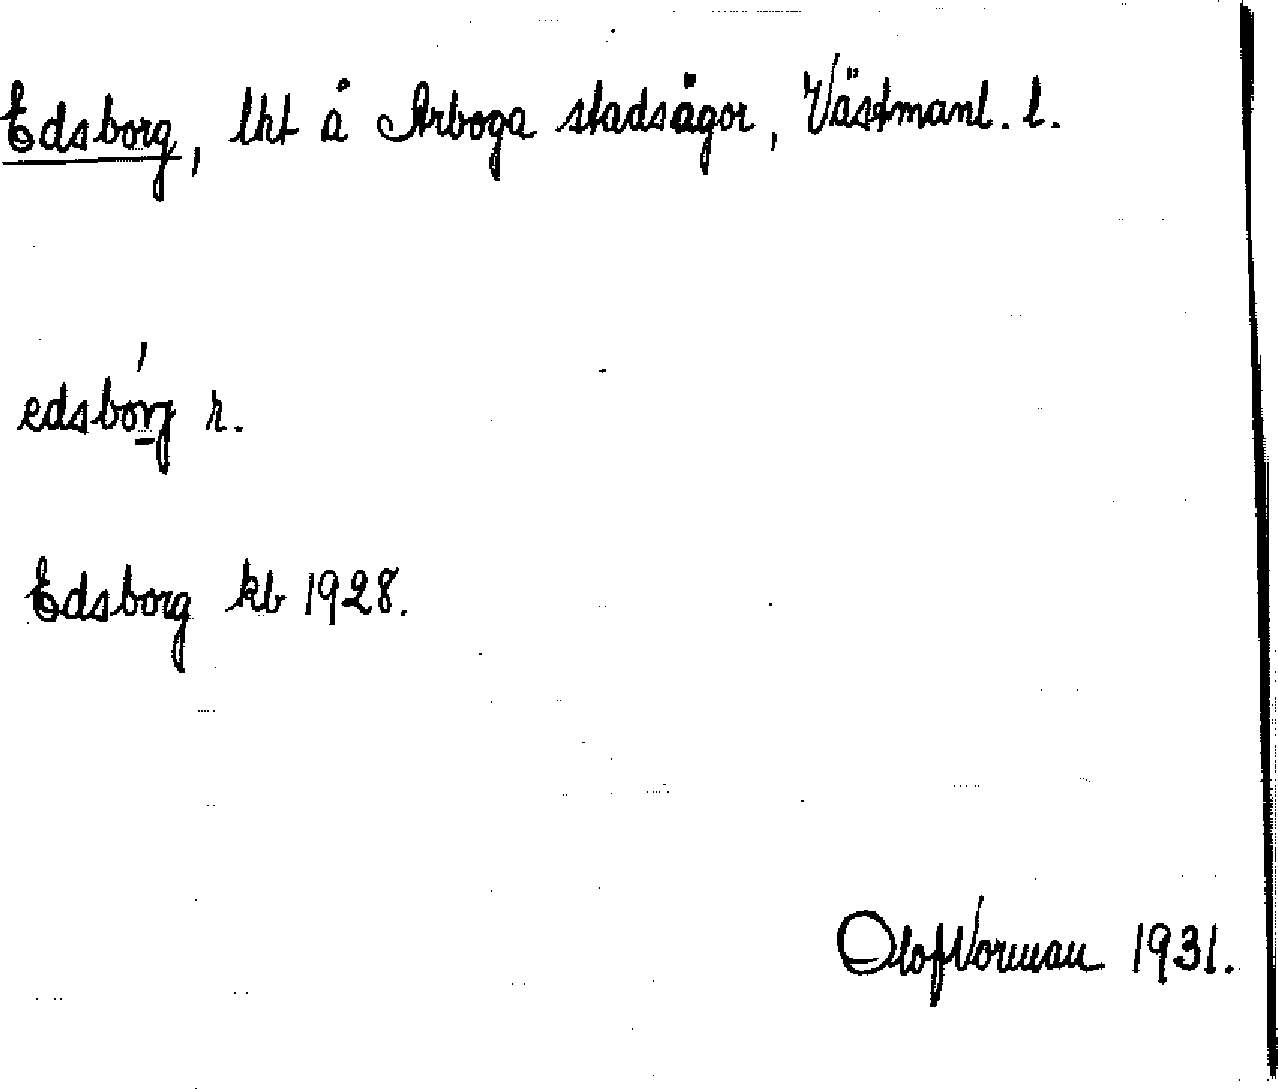 Edsborg, lht å Arboga stadsägor, Västmanl. l.
edsbórg r.
Edsborg kb 1928.
Olof Norman 1931.